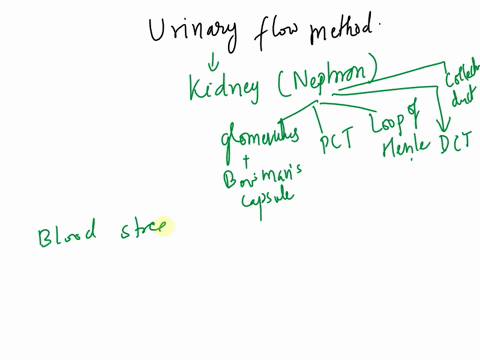 Urinary flow method.
Kidney (Nephron)
glomerulus
+
Bowman's
capsule
PCT
Loop of
Henle
DCT
Collect
duct
Blood stree